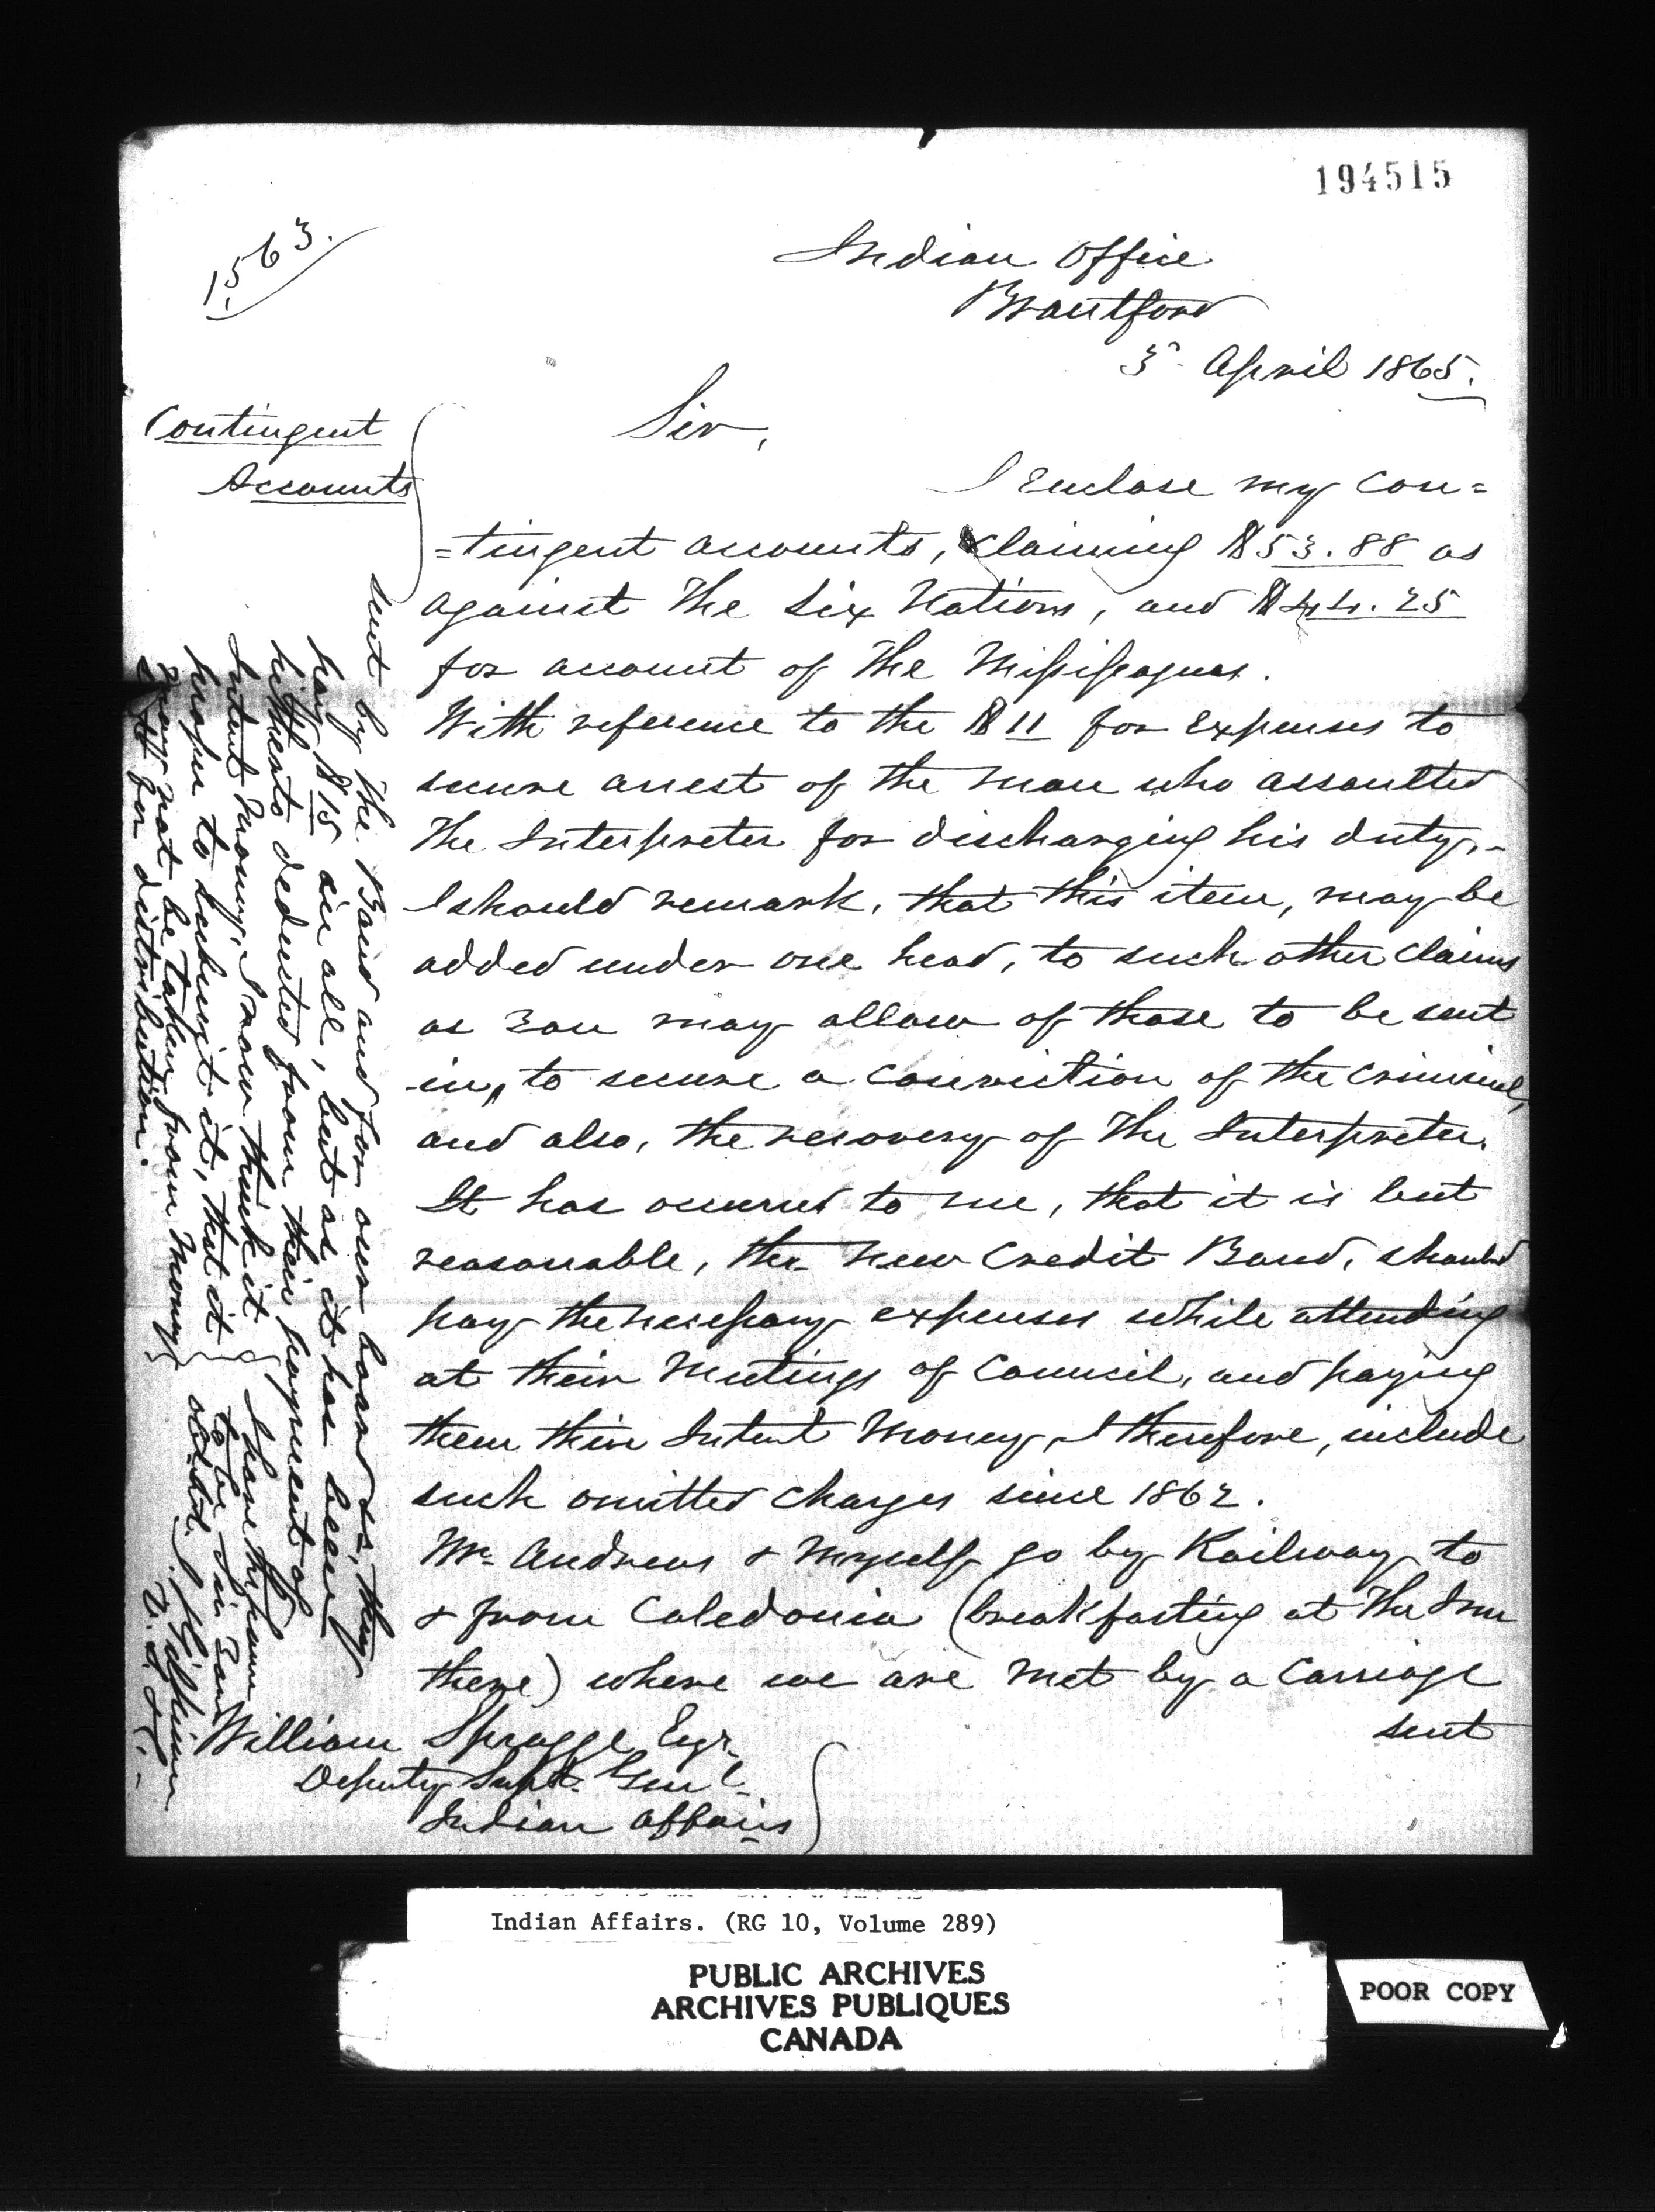 194515
1563.
Indian Office
Brantford
3d April 1865.
Contingent
Accounts
Sir,
I Enclose my Con=
=tingent accounts, claiming $53.88 as
against The Six Nations, and $44.25
for account of The Missisaguas.
With reference to the $11 for Expenses to
secure arrest of the man who assaulted
The Interpreter for discharging his duty,-
I should remark, that this item, may be
added under one head, to such other Claims
as You may allow of those to be sent
in, to secure a Conviction of the Criminal,
and also, the recovery of The Interpreter.
It has occurred to me, that it is but
reasonable, the New Credit Band, should
pay the necessary expenses while attending
at their Meetings of Council, and paying
them their Interest Money, I therefore, include
such omitted charges since 1862.
Mr. Andrews & Myself go by Railway to
& from Caledonia (breakfasting at The Inn
there) where we are met by a Carriage
sent
William Spragge Esqr.
Deputy Supt. Genl.
Indian Affairs
sent by the Band and for our board &c, they
pay $15 in all, but as it has been
hitherto deducted from their payment of
Interest Money, I now think it
proper to submit it, that it
may not be taken from Money
set for distribution.
I have the honor
to be Sir Your
obt. Svt.
J. Gilkison
V. S. I. A.
Indian Affairs. (RG 10, Volume 289)
PUBLIC ARCHIVES
ARCHIVES PUBLIQUES
CANADA
POOR COPY